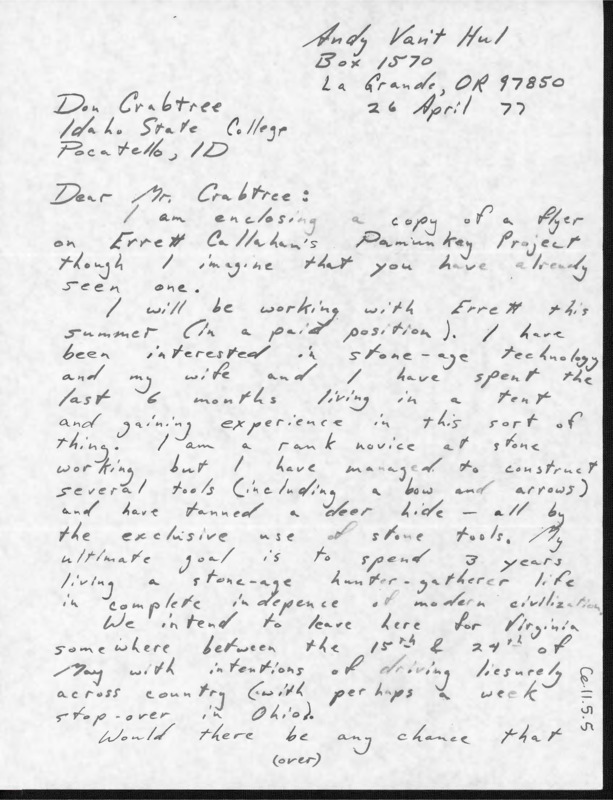 Andy Van't Hul
Box 1570
La Grande, OR 97850
26 April 77
Don Crabtree
Idaho State College
Pocatello, ID
Dear Mr. Crabtree:
I am enclosing a copy of a flyer
on Errett Callahan's Pamunkey Project
though I imagine that you have already
seen one.
I will be working with Errett this
summer (in a paid position). I have
been interested in stone-age technology
and my wife and I have spent the
last 6 months living in a tent
and gaining experience in this sort of
thing. I am a rank novice at stone
working but I have managed to construct
several tools (including a bow and arrows)
and have tanned a deer hide — all by
the exclusive use of stone tools. My
ultimate goal is to spend 3 years
living a stone-age hunter-gatherer life
in complete indepence of modern civilization.
We intend to leave here for Virginia
somewhere between the 15th & 24th of
May with intentions of driving liesurely
across country (with perhaps a week
stop-over in Ohio).
Would there be any chance that
(over)
Ce.11.5.5